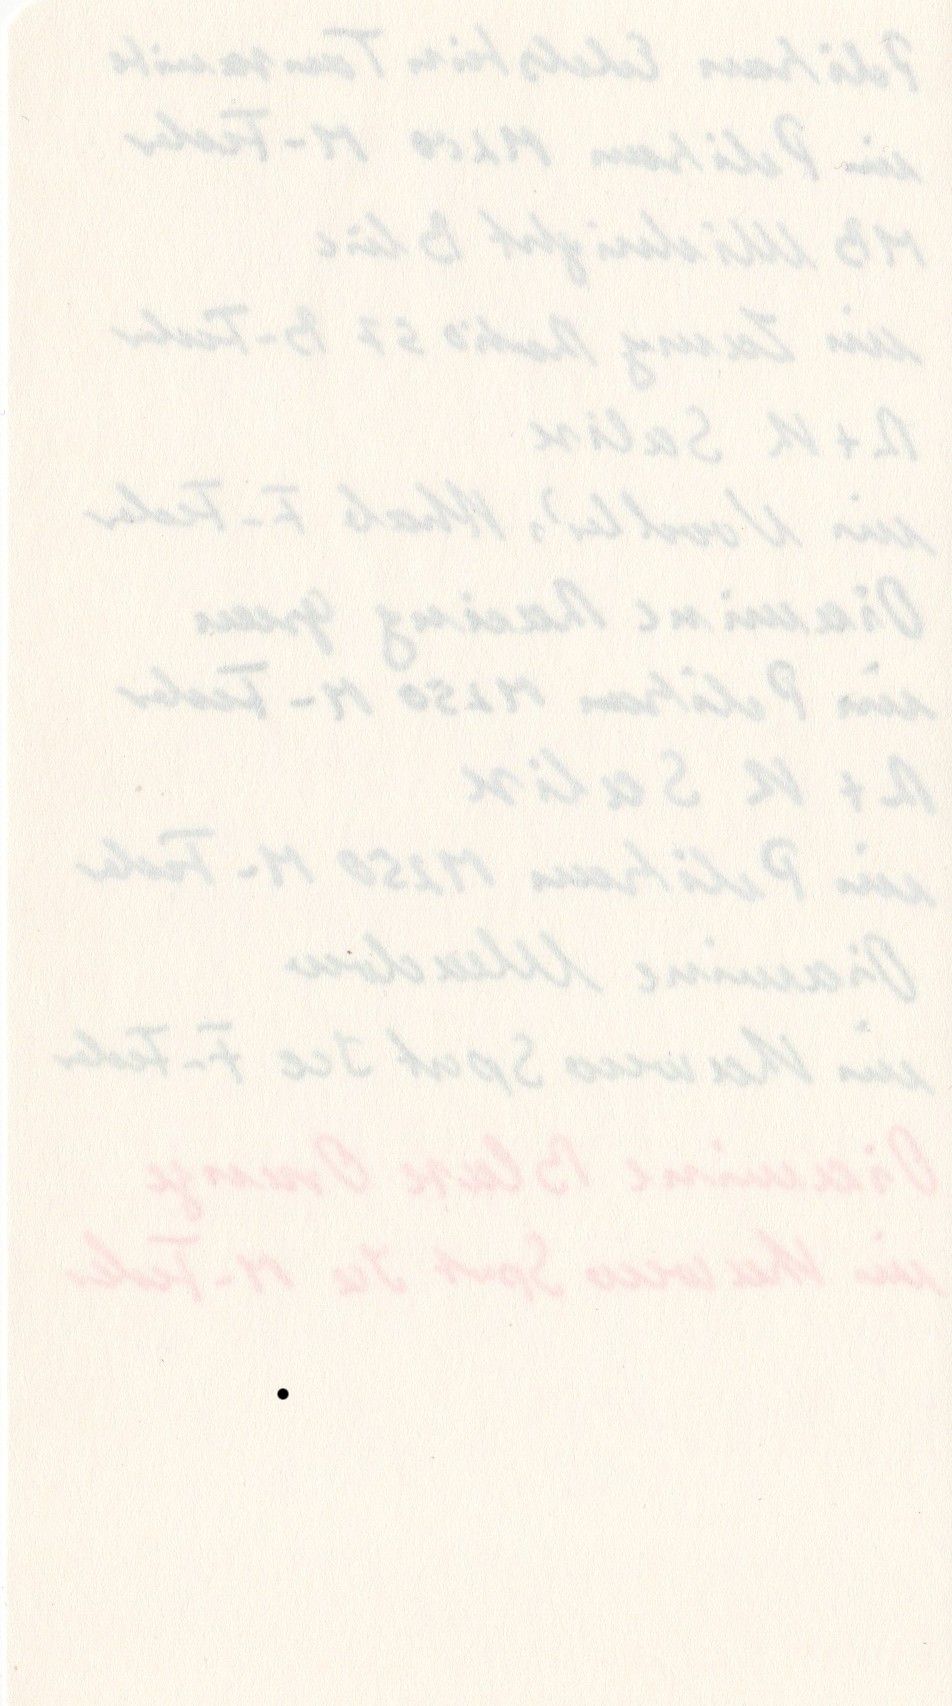 Pelikan Edelstein Tanzanite
im Pelikan M200 M-Feder
MB Midnight Blue
im Lamy 57 B-Feder
R+K Salix
im Noodler's Ahab F-Feder
Diamine Racing green
im Pelikan M250 M-Feder
R+K Salix
im Pelikan M250 M-Feder
Diamine Meadow
im Kaweco Sport Ice F-Feder
Diamine Blaze Orange
im Kaweco Sport Ice M-Feder